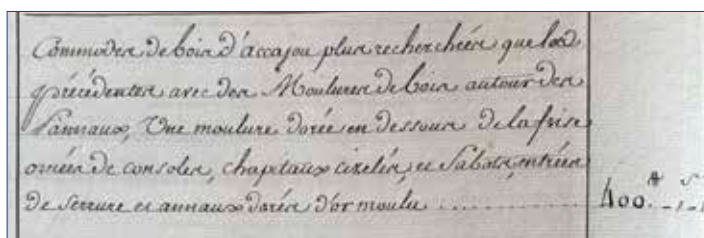 Commodes de bois d'accajou plus recherchées que les
précédentes avec des Moulures de bois autour des
Pannaux, Une moulure dorée en dessous de la frise
ornées de consoles, chapitaux cizelés, et Sabots, entrées
de serrure et annaux dorés d'or moulu .......... 400.